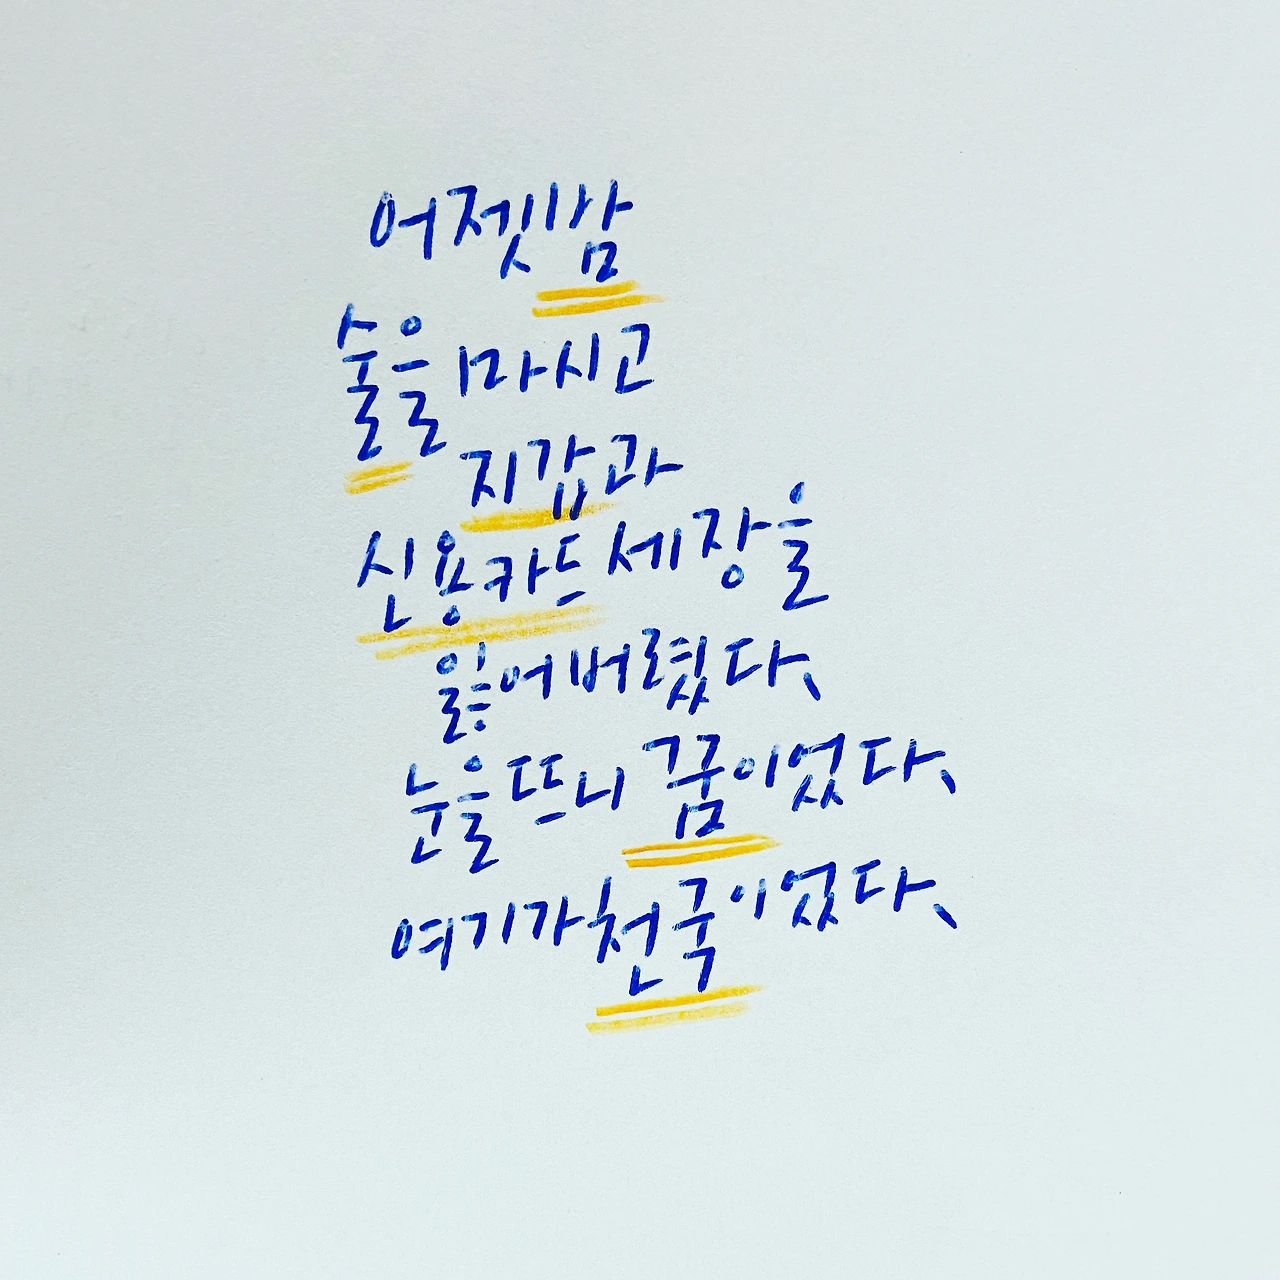 어젯밤
술을 마시고
지갑과
신용카드 세장을
잃어버렸다.
눈을 뜨니 꿈이었다.
여기가 천국이었다.